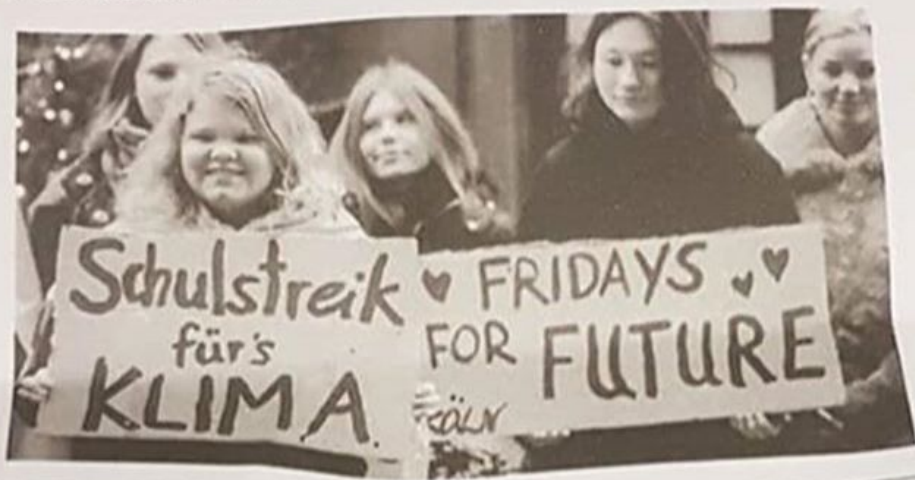 Schulstreik
für's
KLIMA
FRIDAYS
FOR FUTURE
KÖLN